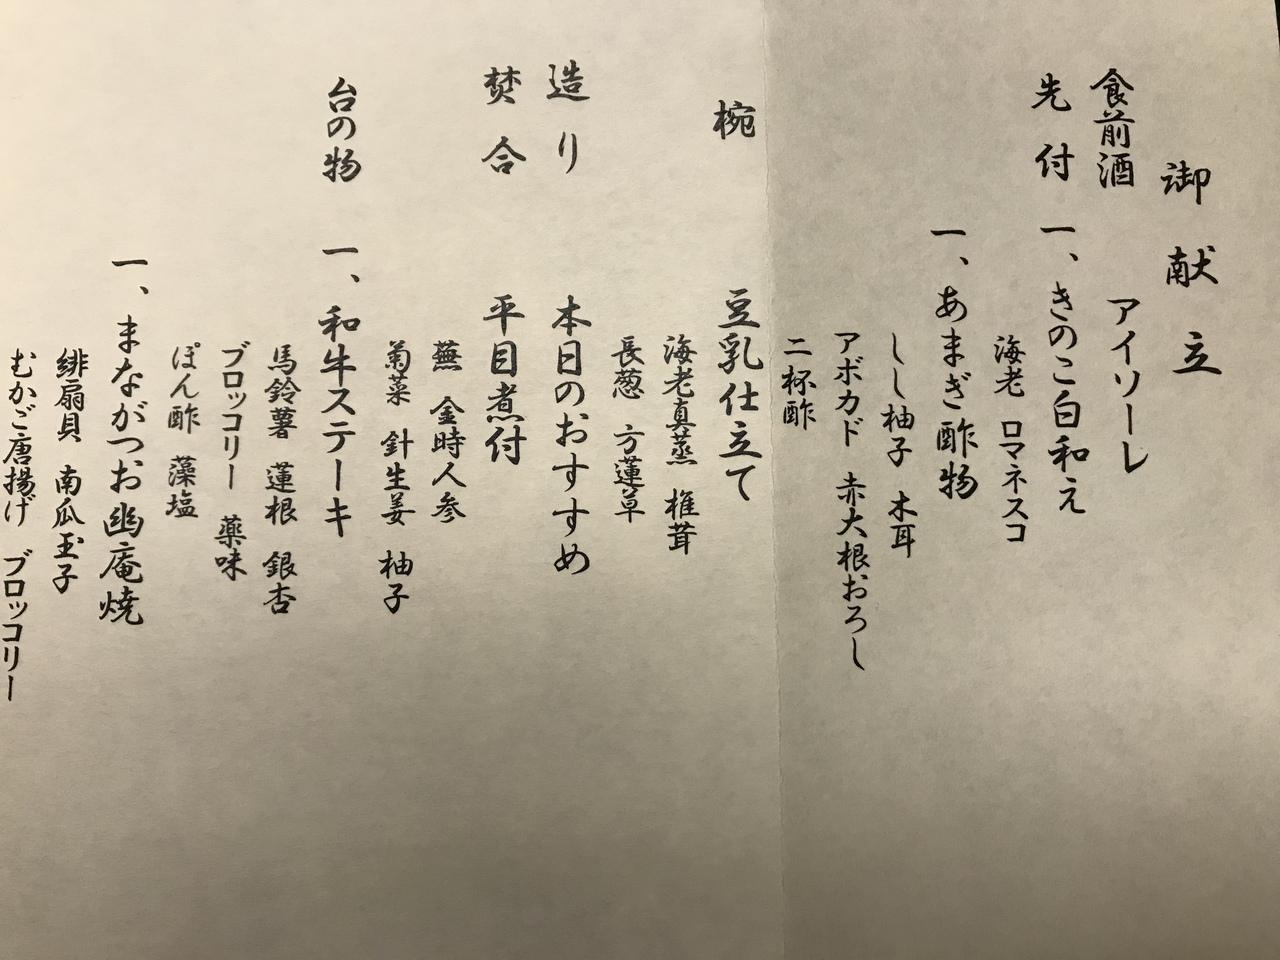 御献立
食前酒 アイソーレ
先付 一、きのこ白和え
海老 ロマネスコ
一、あまぎ酢物
しし柚子 木耳
アボカド 赤大根おろし
二杯酢
椀 豆乳仕立て
海老真蒸 椎茸
長葱 方蓮草
造り 本日のおすすめ
焚合 平目煮付
蕪 金時人参
菊菜 針生姜 柚子
台の物 一、和牛ステーキ
馬鈴薯 蓮根 銀杏
ブロッコリー 薬味
ぽん酢 藻塩
一、まながつお幽庵焼
緋扇貝 南瓜玉子
むかご唐揚げ ブロッコリー